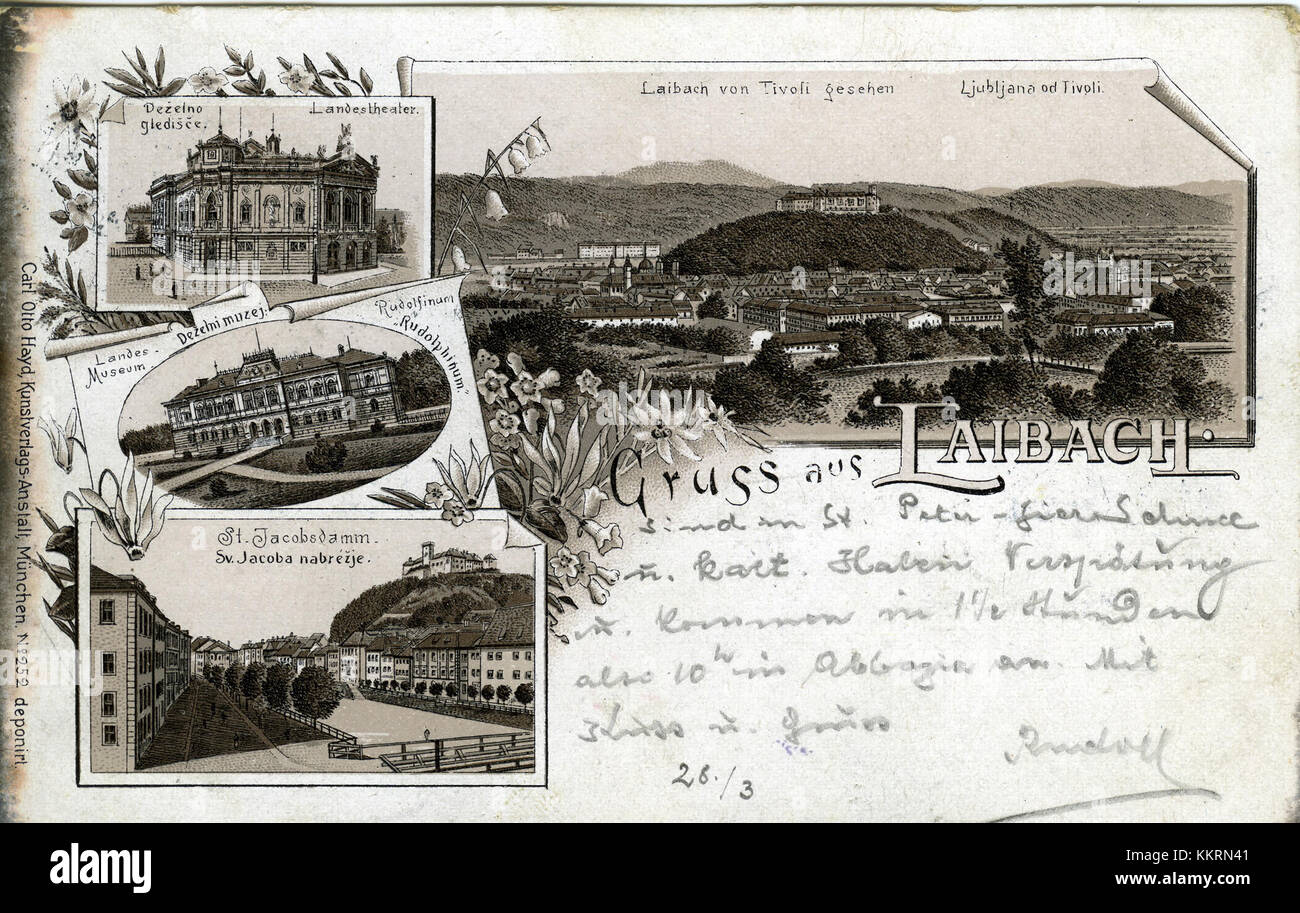 Deželno Landestheater.
gledišče.
Laibach von Tivoli gesehen Ljubljana od Tivoli.
Landes-
Museum.
Deželni muzej.
Rudolfinum
"Rudolphinum."
St. Jacobsdamm.
Sv. Jacoba nabrežje.
Gruss aus LAIBACH.
Sind in St. Peter - hier Schnee
u. kalt. Haben Verspätung
u. kommen in 1½ Stunden
also 10 in Abbazia an. Mit
Kuss u. Gruss
Rudolf
28./3
Carl Otto Hayd, Kunstverlags-Anstalt, München. No 252. deponirt.
alamy
a
a
alamy
Image ID: KKRN41
www.alamy.com